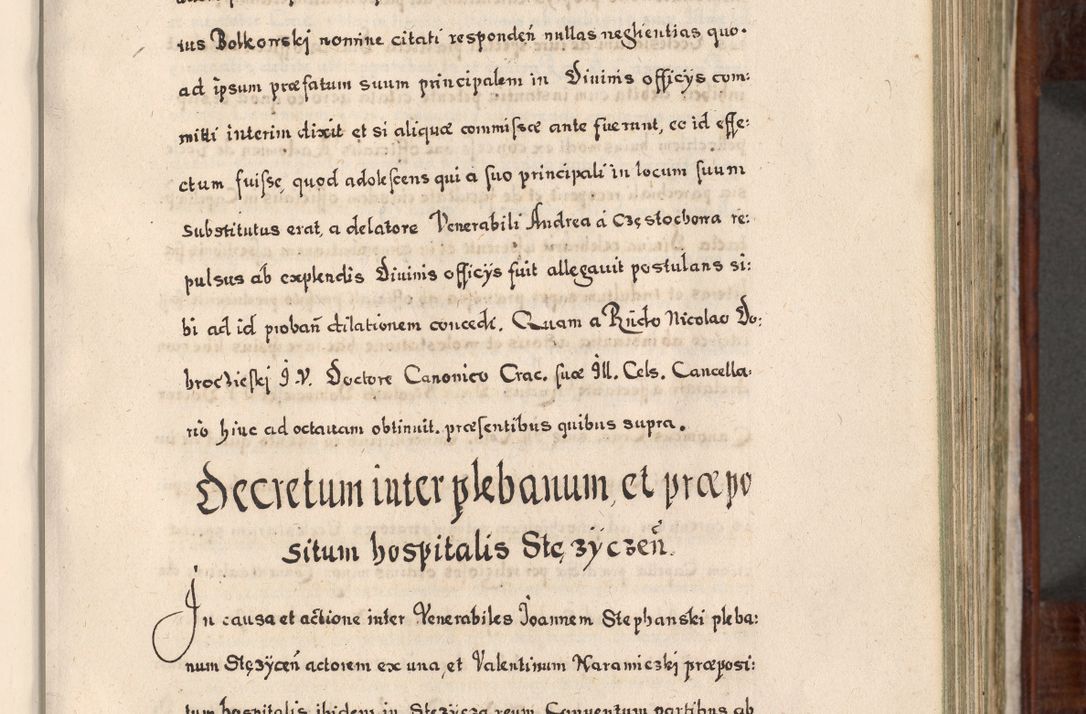 ius Bolkowskj nomine citati responden̄ nullas neglientias quo⸗
ad ipsum præfatum suum principalem in Diuinis officÿs com⸗
mitti interim dixit et si aliquæ commiſsæ ante fuerunt, ec id effe⸗
ctum fuiſse, quod adoleſcens qui a ſuo principali in locum ſuum
substitutus erat, a delatore Venerabili Andrea á Częstochowa re⸗
pulsus ab explendis Diuinis officÿs fuit allegauit postulans si⸗
bi ad id proban̄ dilationem concedi. Quam a Rn̄do Nicolao Do⸗
broczieſkj J.V. Doctore Canonico Crac. ſuæ Ill. Cels. Cancella⸗
rio hinc ad octauam obtinuit. præſentibus quibus supra.
Decretum inter plebanum, et præpo
situm hospitalis Stęzÿczen̄.
In causa et actione inter Venerabiles Joannem Stephanski pleba⸗
num Stęzÿcen̄ actorem ex una, et Valentinum Naramiczkj præposi⸗
tum hospitalis ibidem in Stęzÿcza reum Conuentum partibus ab